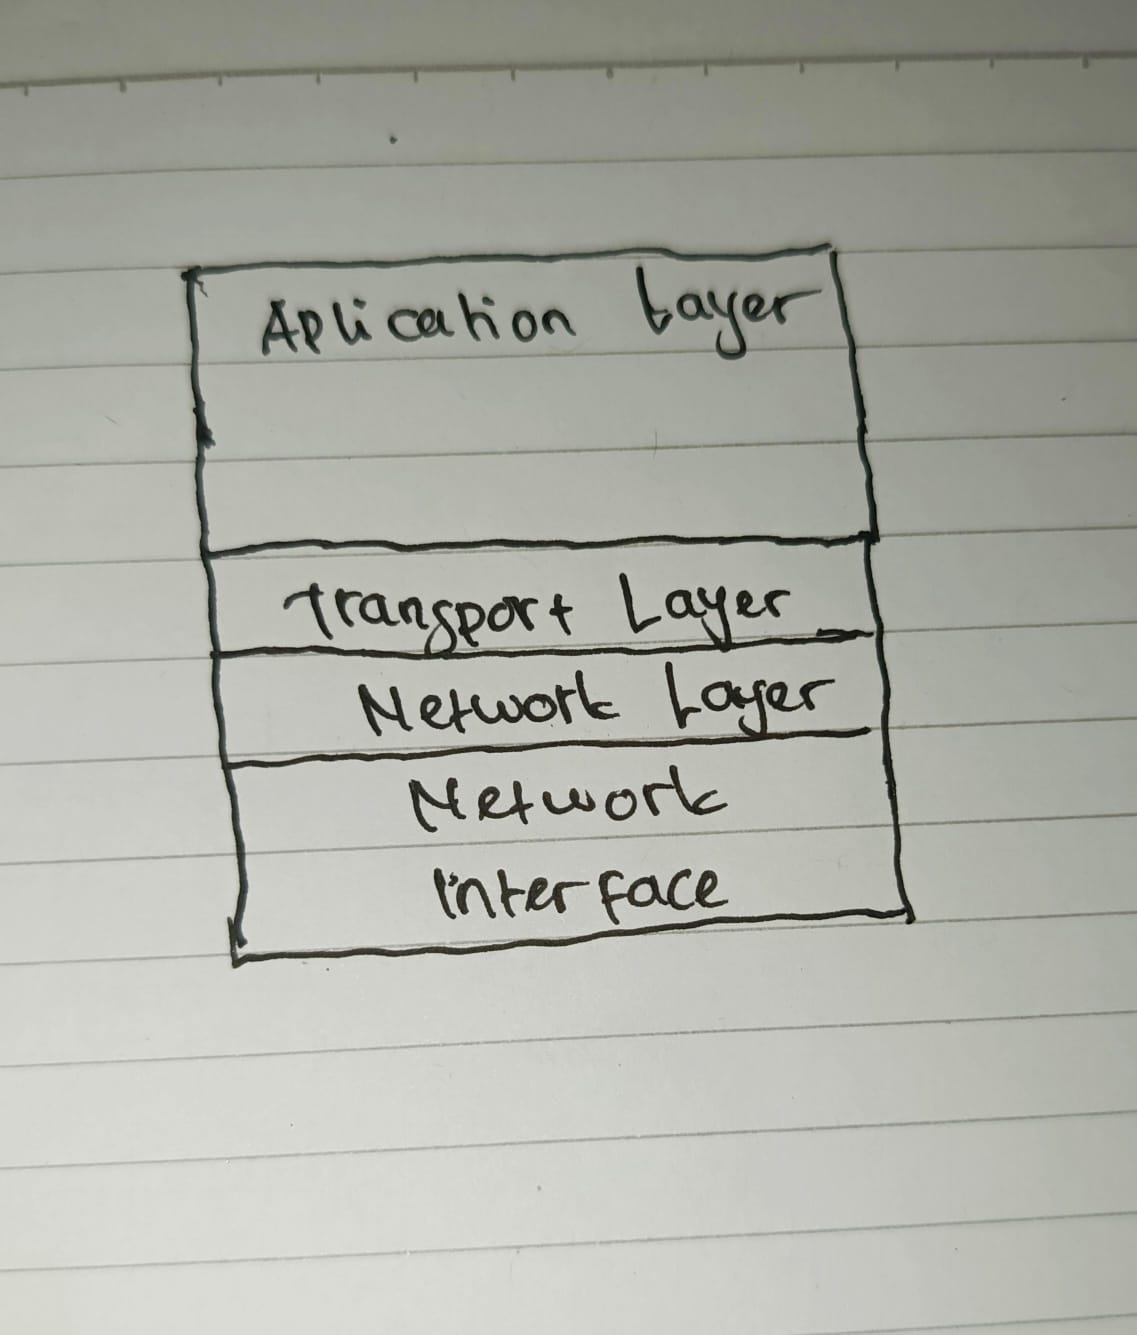 Aplication Layer
Transport Layer
Network Layer
Network
Interface